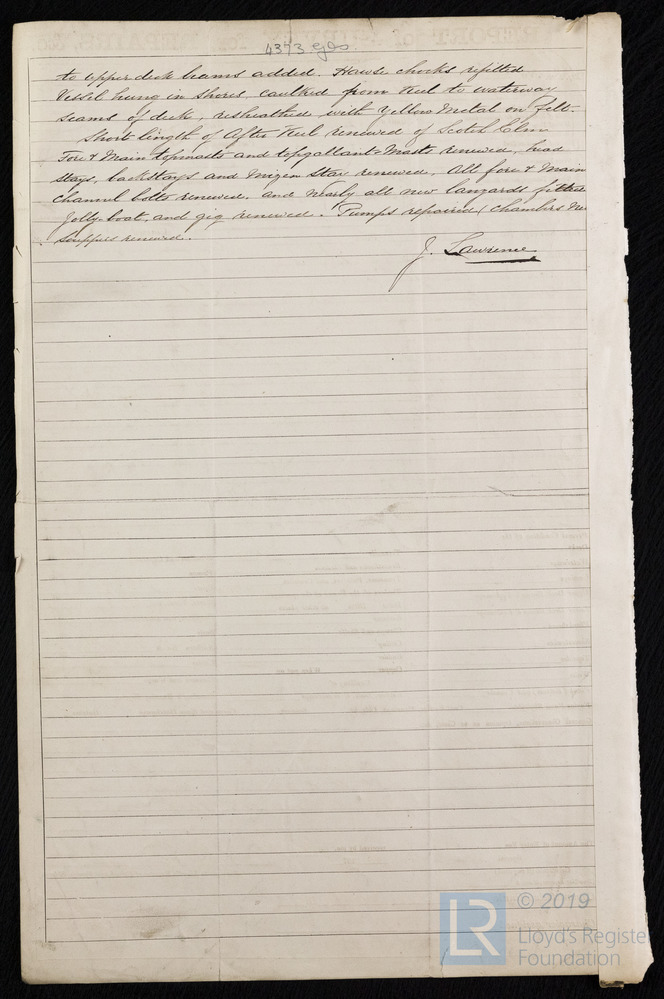 4373 Gls
to upper deck beams added. Hawse chocks refitted
Vessel hung in Shores caulked from Keel to waterway
seams of deck, resheathed with Yellow Metal on felt.
Short length of After Keel renewed of Scotch Elm
Fore & Main topmasts and topgallant-Masts renewed, head
stays, backstays and Mizen Stay renewed, All fore & Main
channel bolts renewed, and nearly all new lanyards fitted
Jolly boat, and gig renewed. Pumps repaired (Chambers
Scuppers renewed.
J. Lawrence
© 2019
LR
Lloyd's Register
Foundation